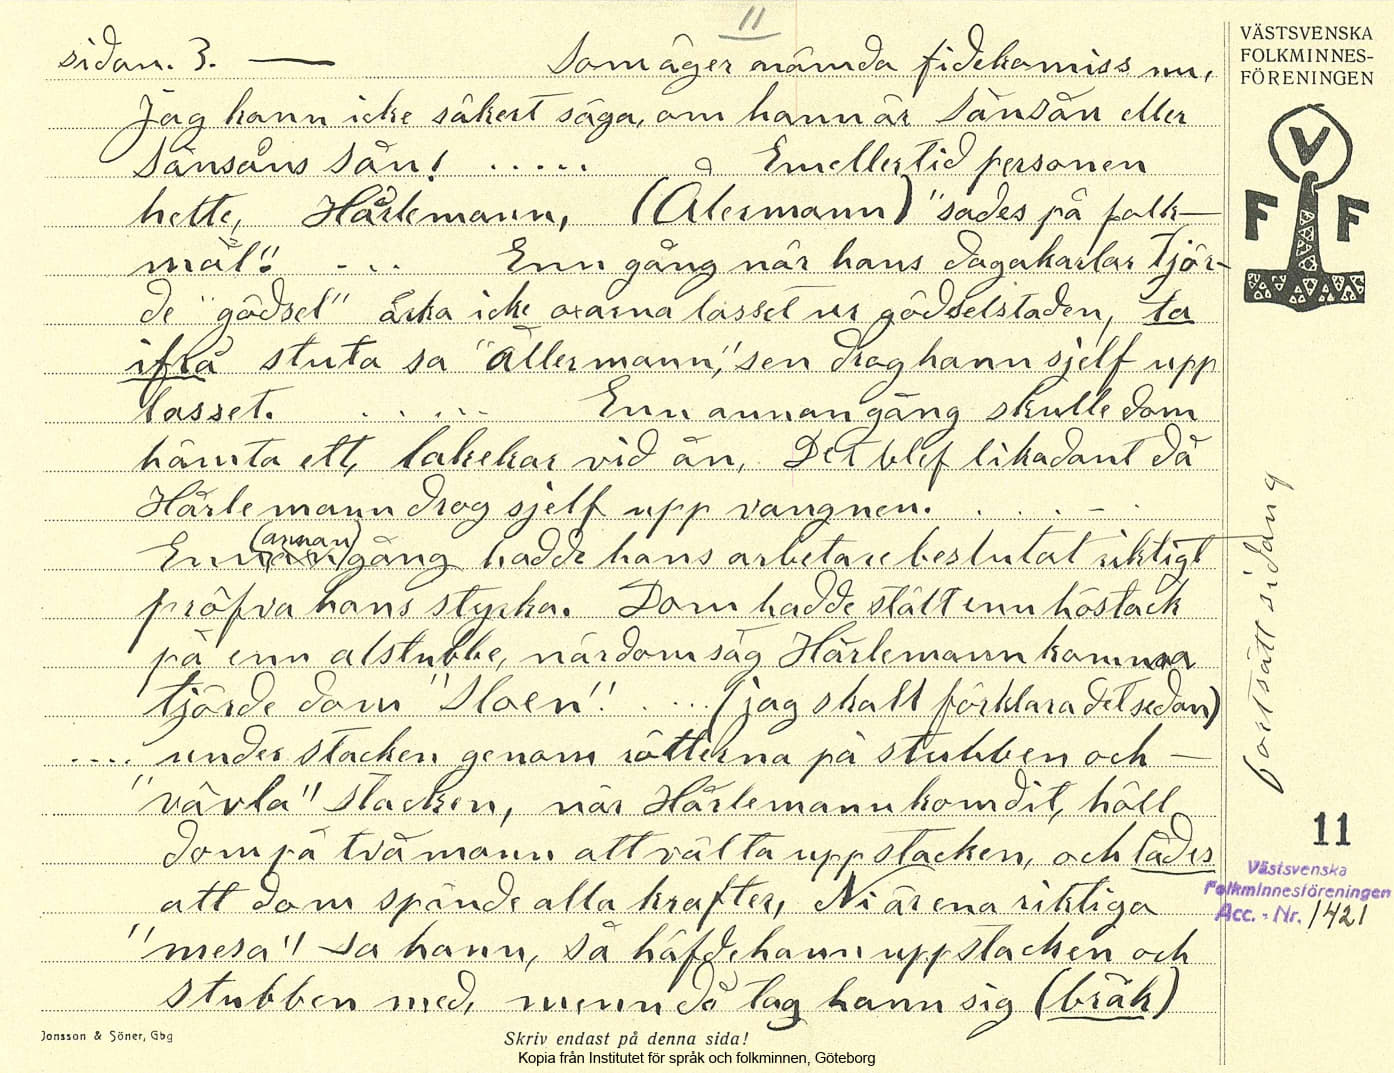 11
sidan. 3. — Som äger nämda fidekomiss nu,
Jag kann icke säkert säga, om hann är sånsån eller
sånsåns sån! ..... Emellertid personen
hette, Hårlemann, (Ålermann) "sades på folk-
mål". ... Enn gång när hans dagakarlar tjör-
de "gödsel" årka icke oxarna lasset ur gödselstaden, ta
ifrå stuta sa "Ållermann", sen drog hann sjelf upp
lasset. ..... Enn annan gång skulle dom
hämta ett, lakekar vid ån, Det blef likadant då
Hårlemann drog sjelf upp vangnen. . . . - .
Enn (annan) gång hadde hans arbetare beslutat riktigt
pröfva hans styrka. Dom hadde stält enn höstack
på enn alstubbe, när dom såg Hårlemann komma
tjörde dom "sloen". .... (jag skall förklara det sedan)
.... under stacken genom rötterna på stubben och —
"vävla" stacken, när Hårlemann kom dit, höll
dom på två mann att välta upp stacken, och lådes
att dom spände alla krafter, Ni är ena riktiga
"mesa" sa hann, så häfde hann upp stacken och
stubben med, menn då tog hann sig (bråk)
fortsätt sidan 4
VÄSTSVENSKA
FOLKMINNES-
FÖRENINGEN
V
F F
11
Västsvenska
Folkminnesföreningen
Acc. - Nr. 1421
Jonsson & Söner, Gbg
Skriv endast på denna sida!
Kopia från Institutet för språk och folkminnen, Göteborg